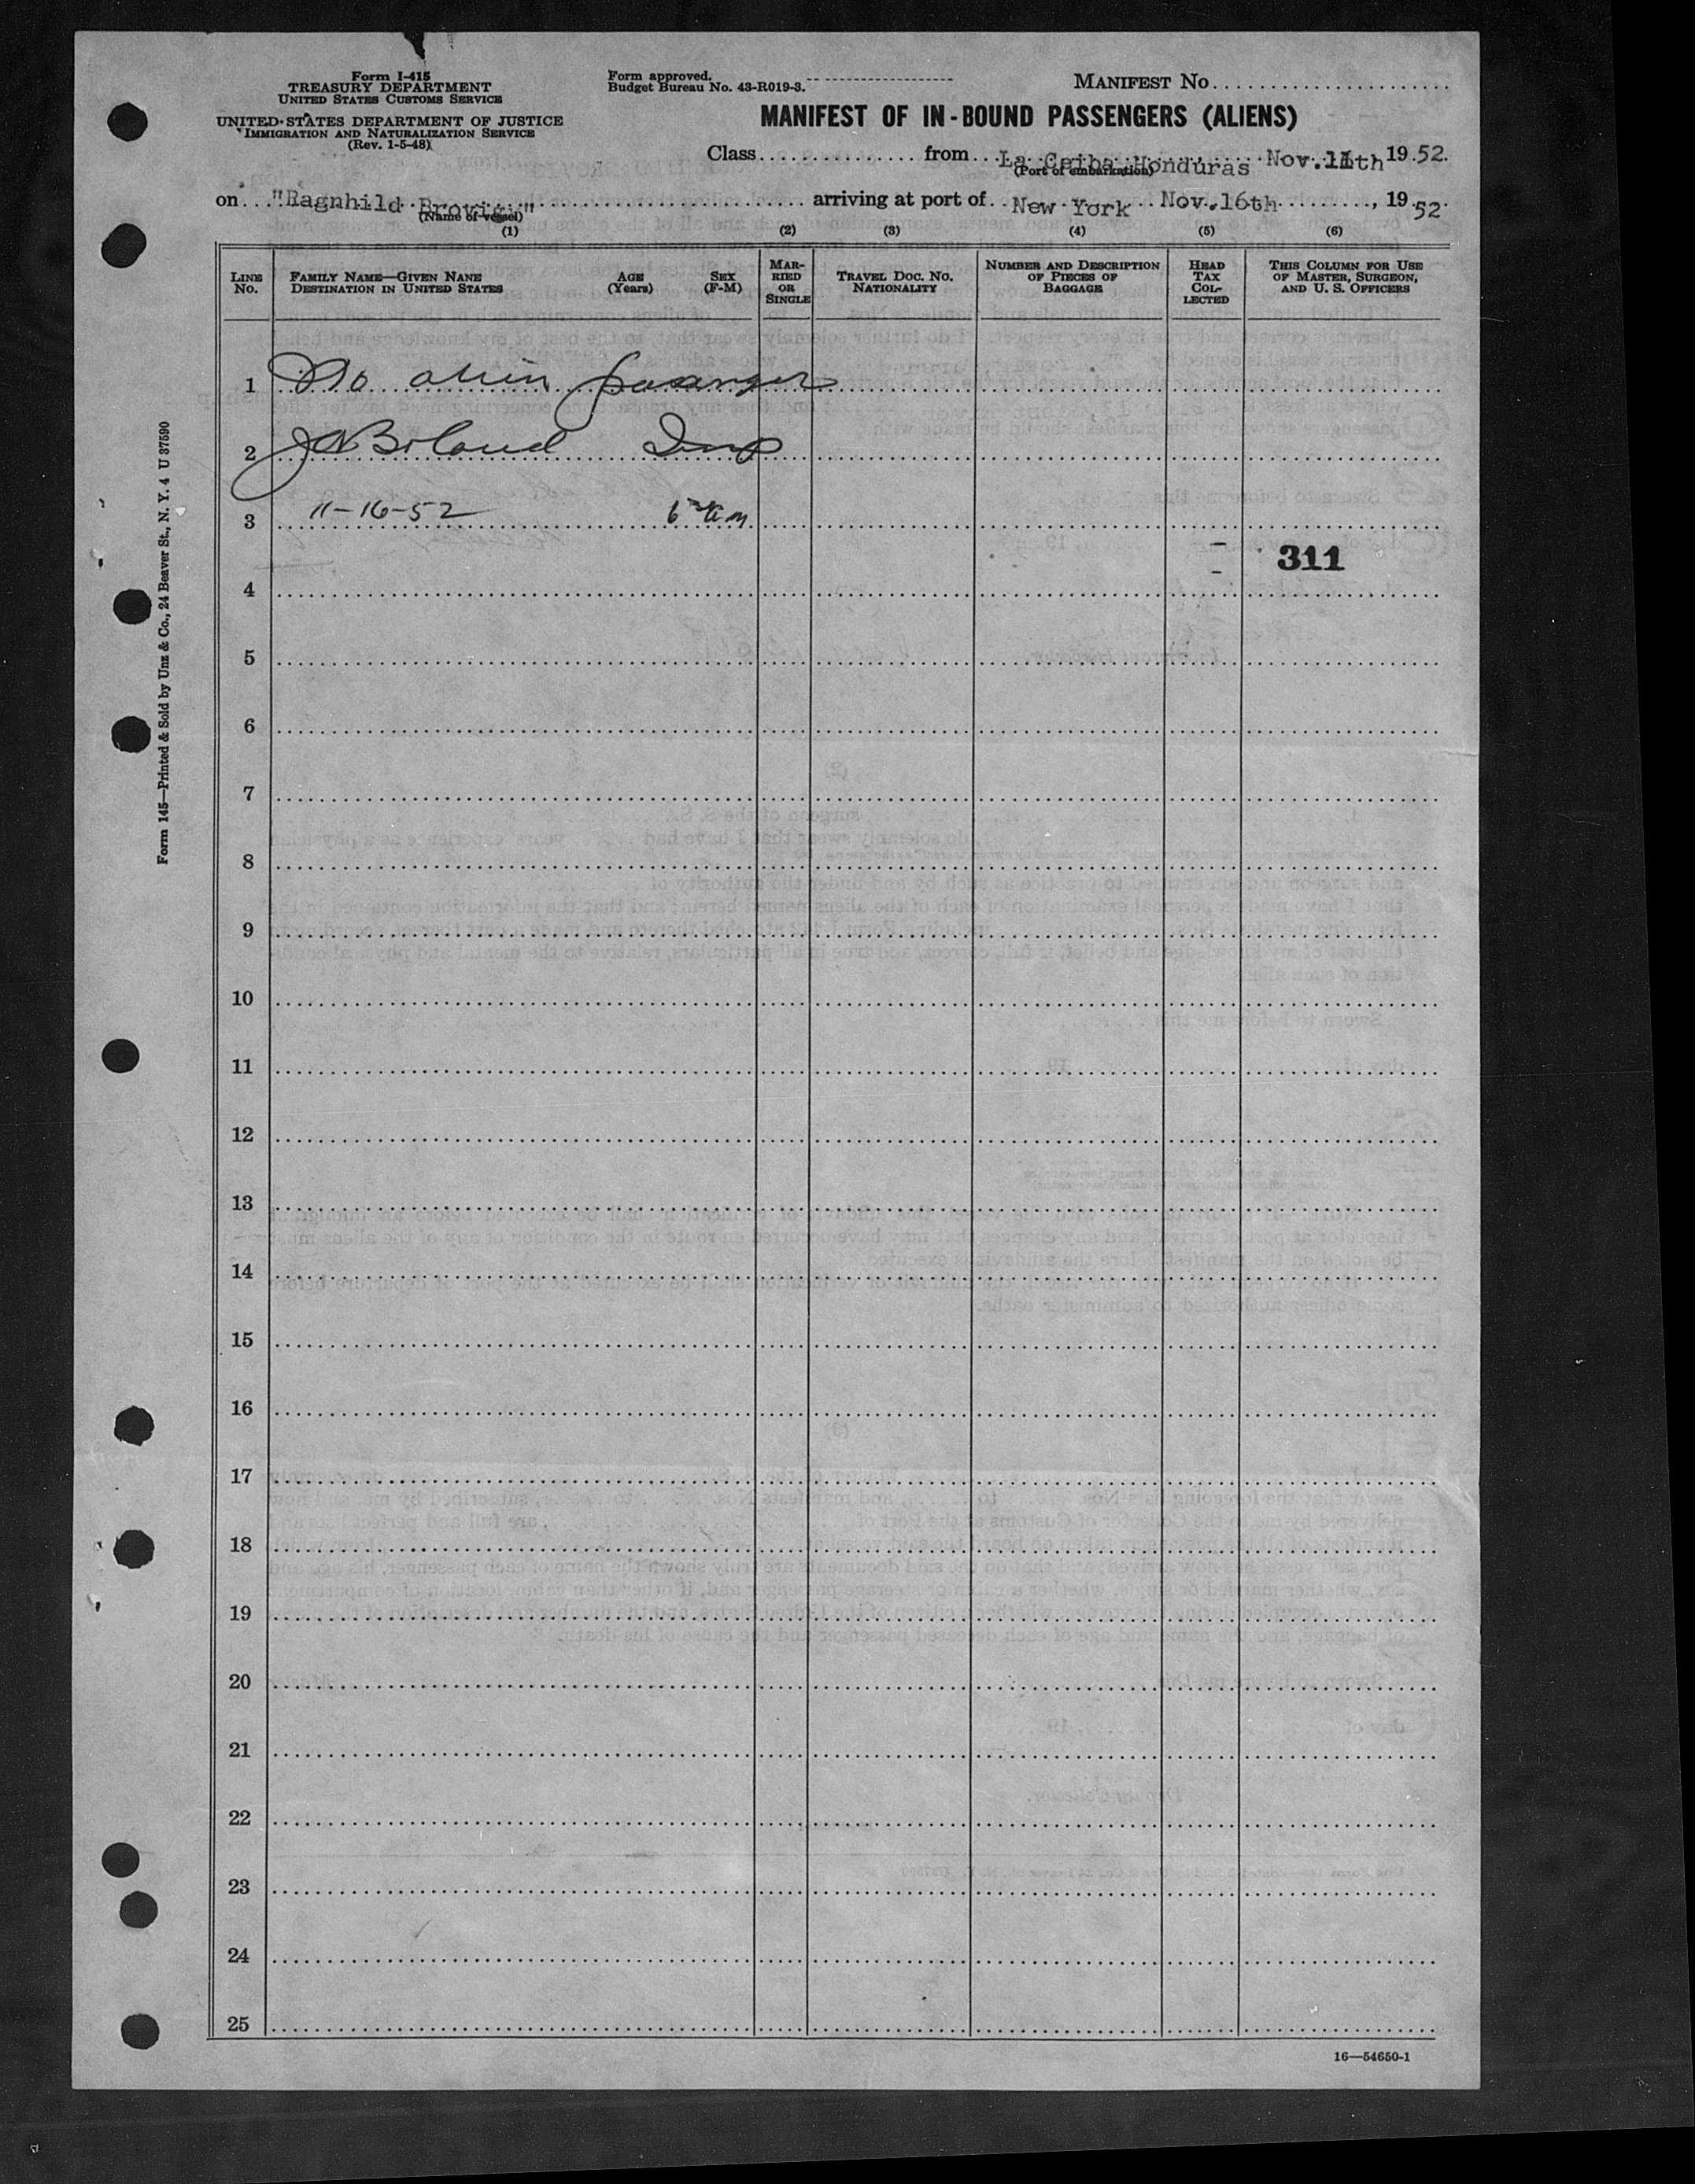 Form I-415
TREASURY DEPARTMENT
UNITED STATES CUSTOMS SERVICE
UNITED STATES DEPARTMENT OF JUSTICE
IMMIGRATION AND NATURALIZATION SERVICE
(Rev. 1-5-48)
Form approved.
Budget Bureau No. 43-R019-3.
MANIFEST NO.
MANIFEST OF IN-BOUND PASSENGERS (ALIENS)
Class from La Ceiba Honduras Nov.11th 1952.
(Port of embarkation)
on "Ragnhild Brovig" arriving at port of New York Nov.16th, 1952.
(Name of vessel)
(1) (2) (3) (4) (5) (6)
LINE NO.
FAMILY NAME—GIVEN NANE DESTINATION IN UNITED STATES
AGE (Years)
SEX (F-M)
MARRIED OR SINGLE
TRAVEL DOC. NO. NATIONALITY
NUMBER AND DESCRIPTION OF PIECES OF BAGGAGE
HEAD TAX COLLECTED
THIS COLUMN FOR USE OF MASTER, SURGEON, AND U. S. OFFICERS
1 No alien passengers
2 Boland Insp
3 11-16-52
311
4
5
6
7
8
9
10
11
12
13
14
15
16
17
18
19
20
21
22
23
24
25
16—54650-1
Form 145—Printed & Sold by Unz & Co., 24 Beaver St., N. Y. 4 U 37590